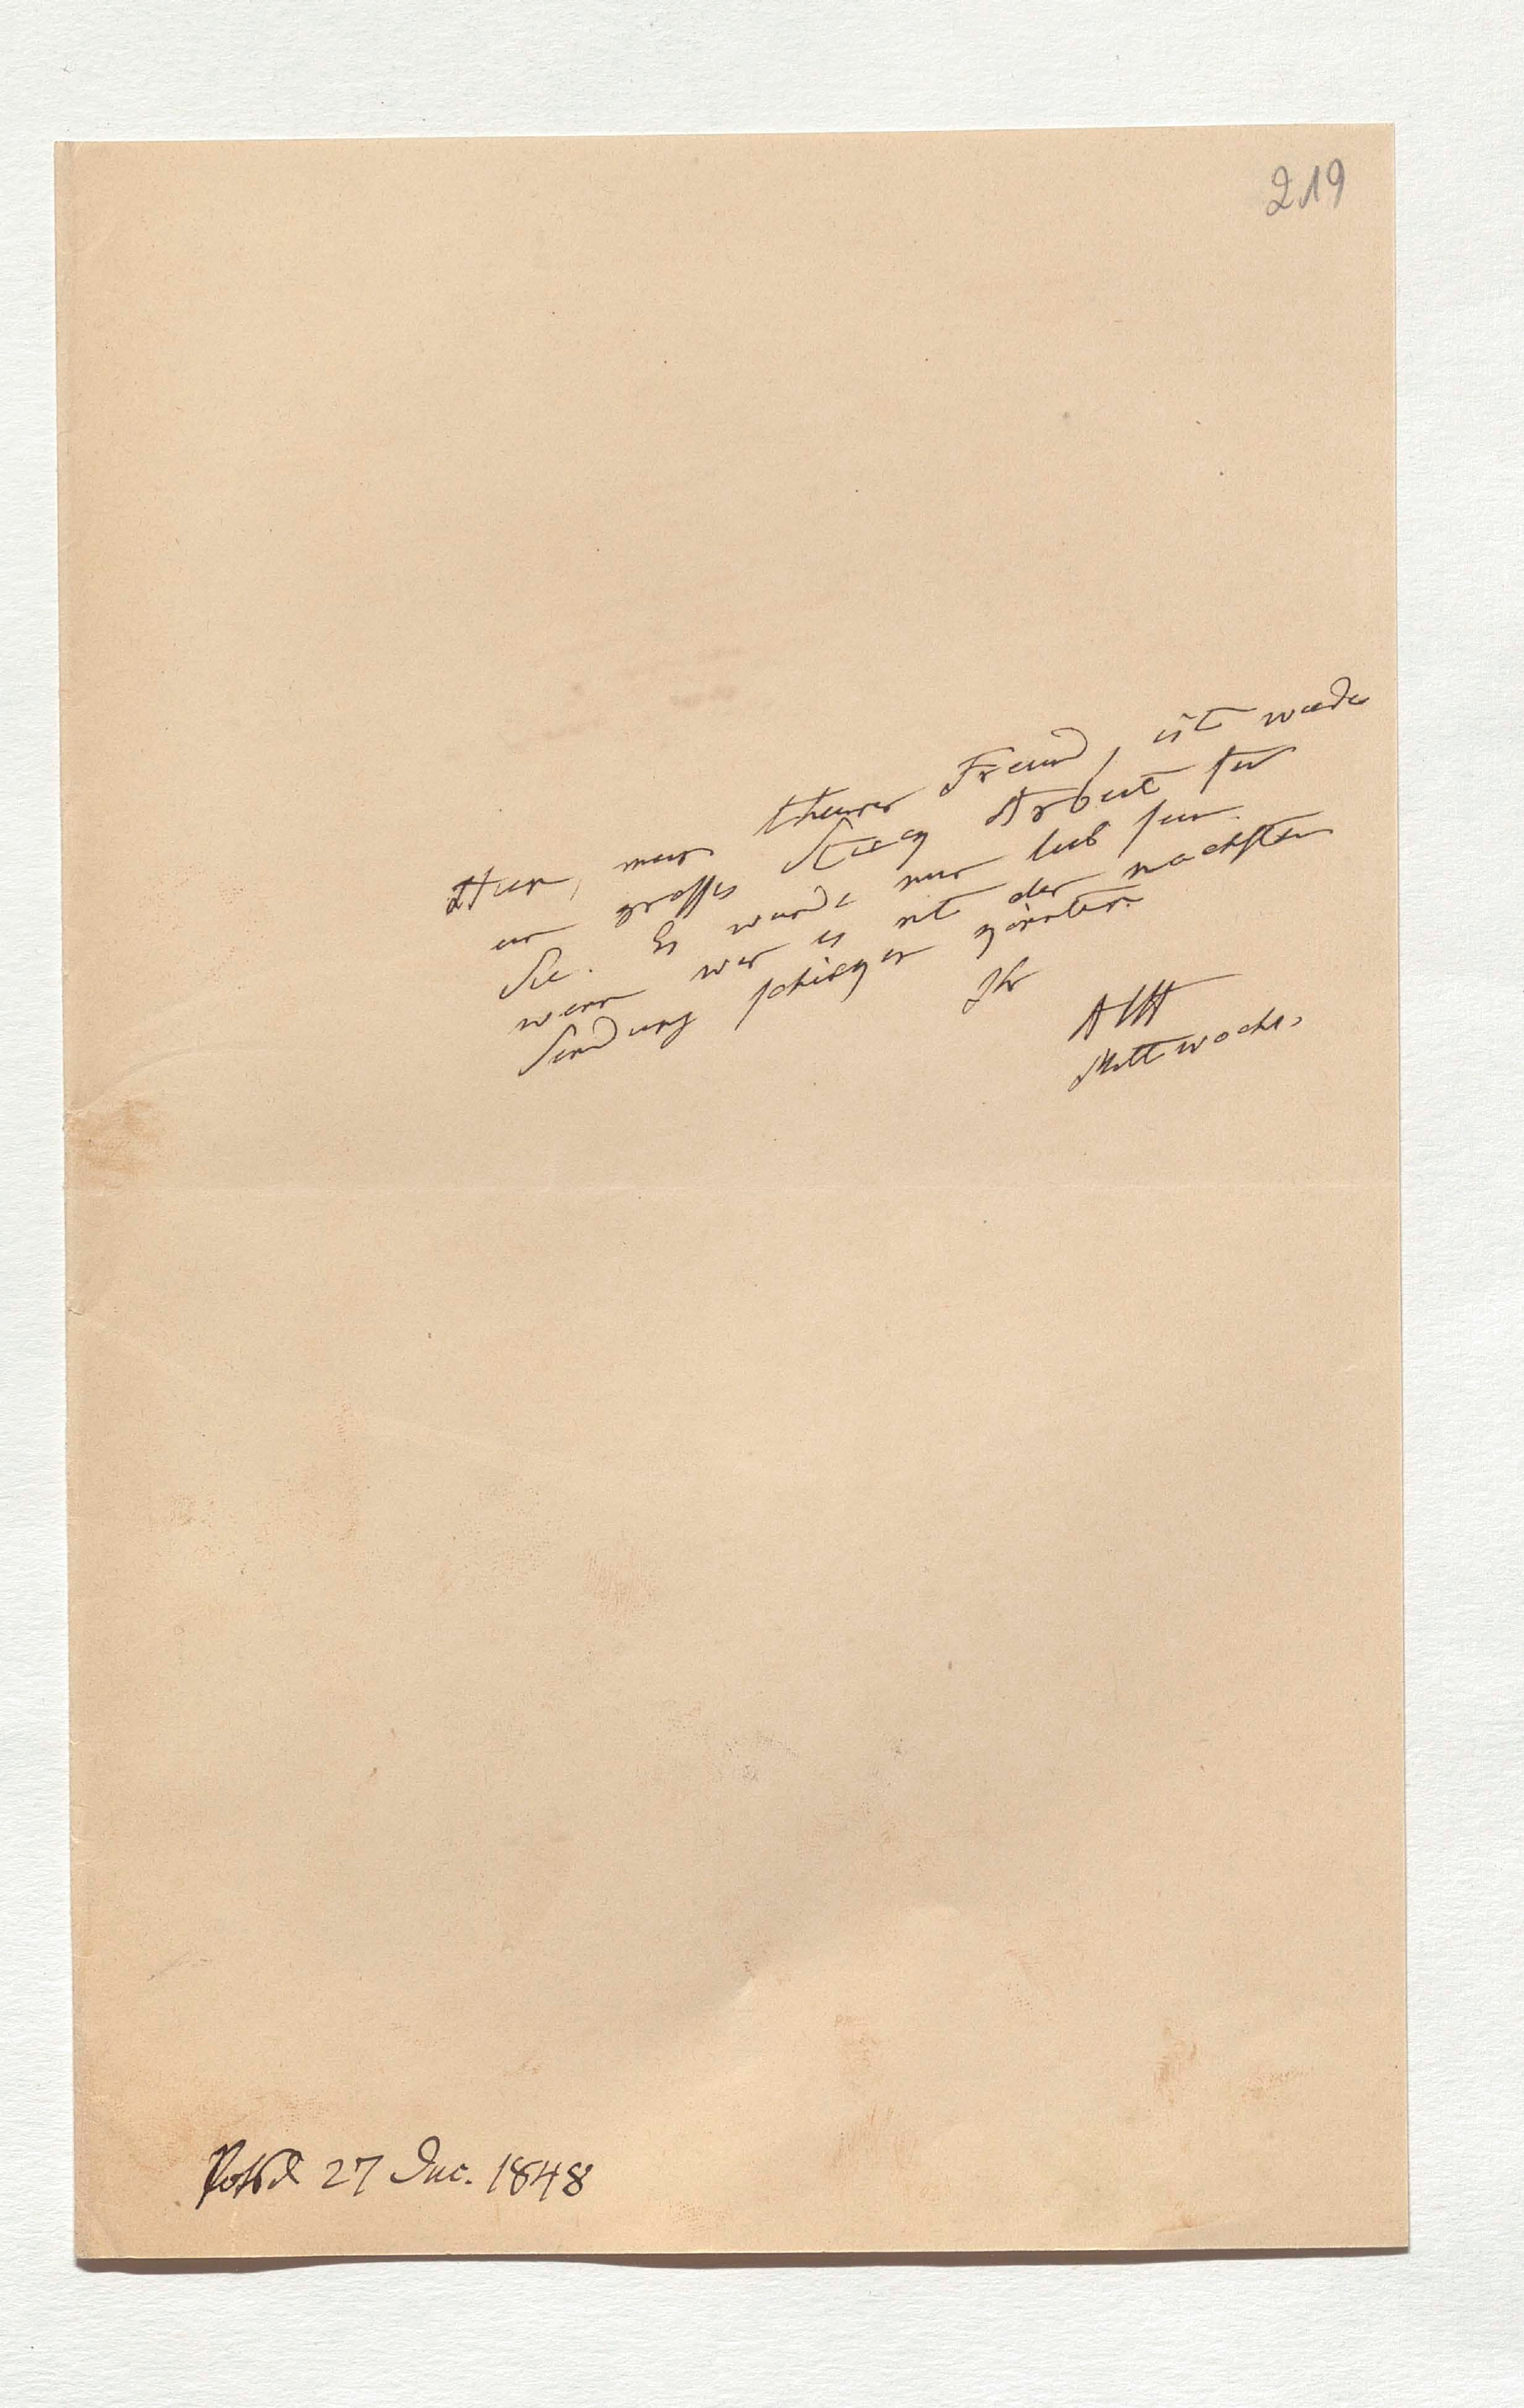 219
Hier, mein theurer Freund, ist wieder
ein grosses Stück Arbeit für
Sie. Es würde mir lieb sein
wenn wir es mit der nächsten
Sendung schicken könnten.
Ihr
AHt
Mittwochs.
Potsd 27 Dec. 1848